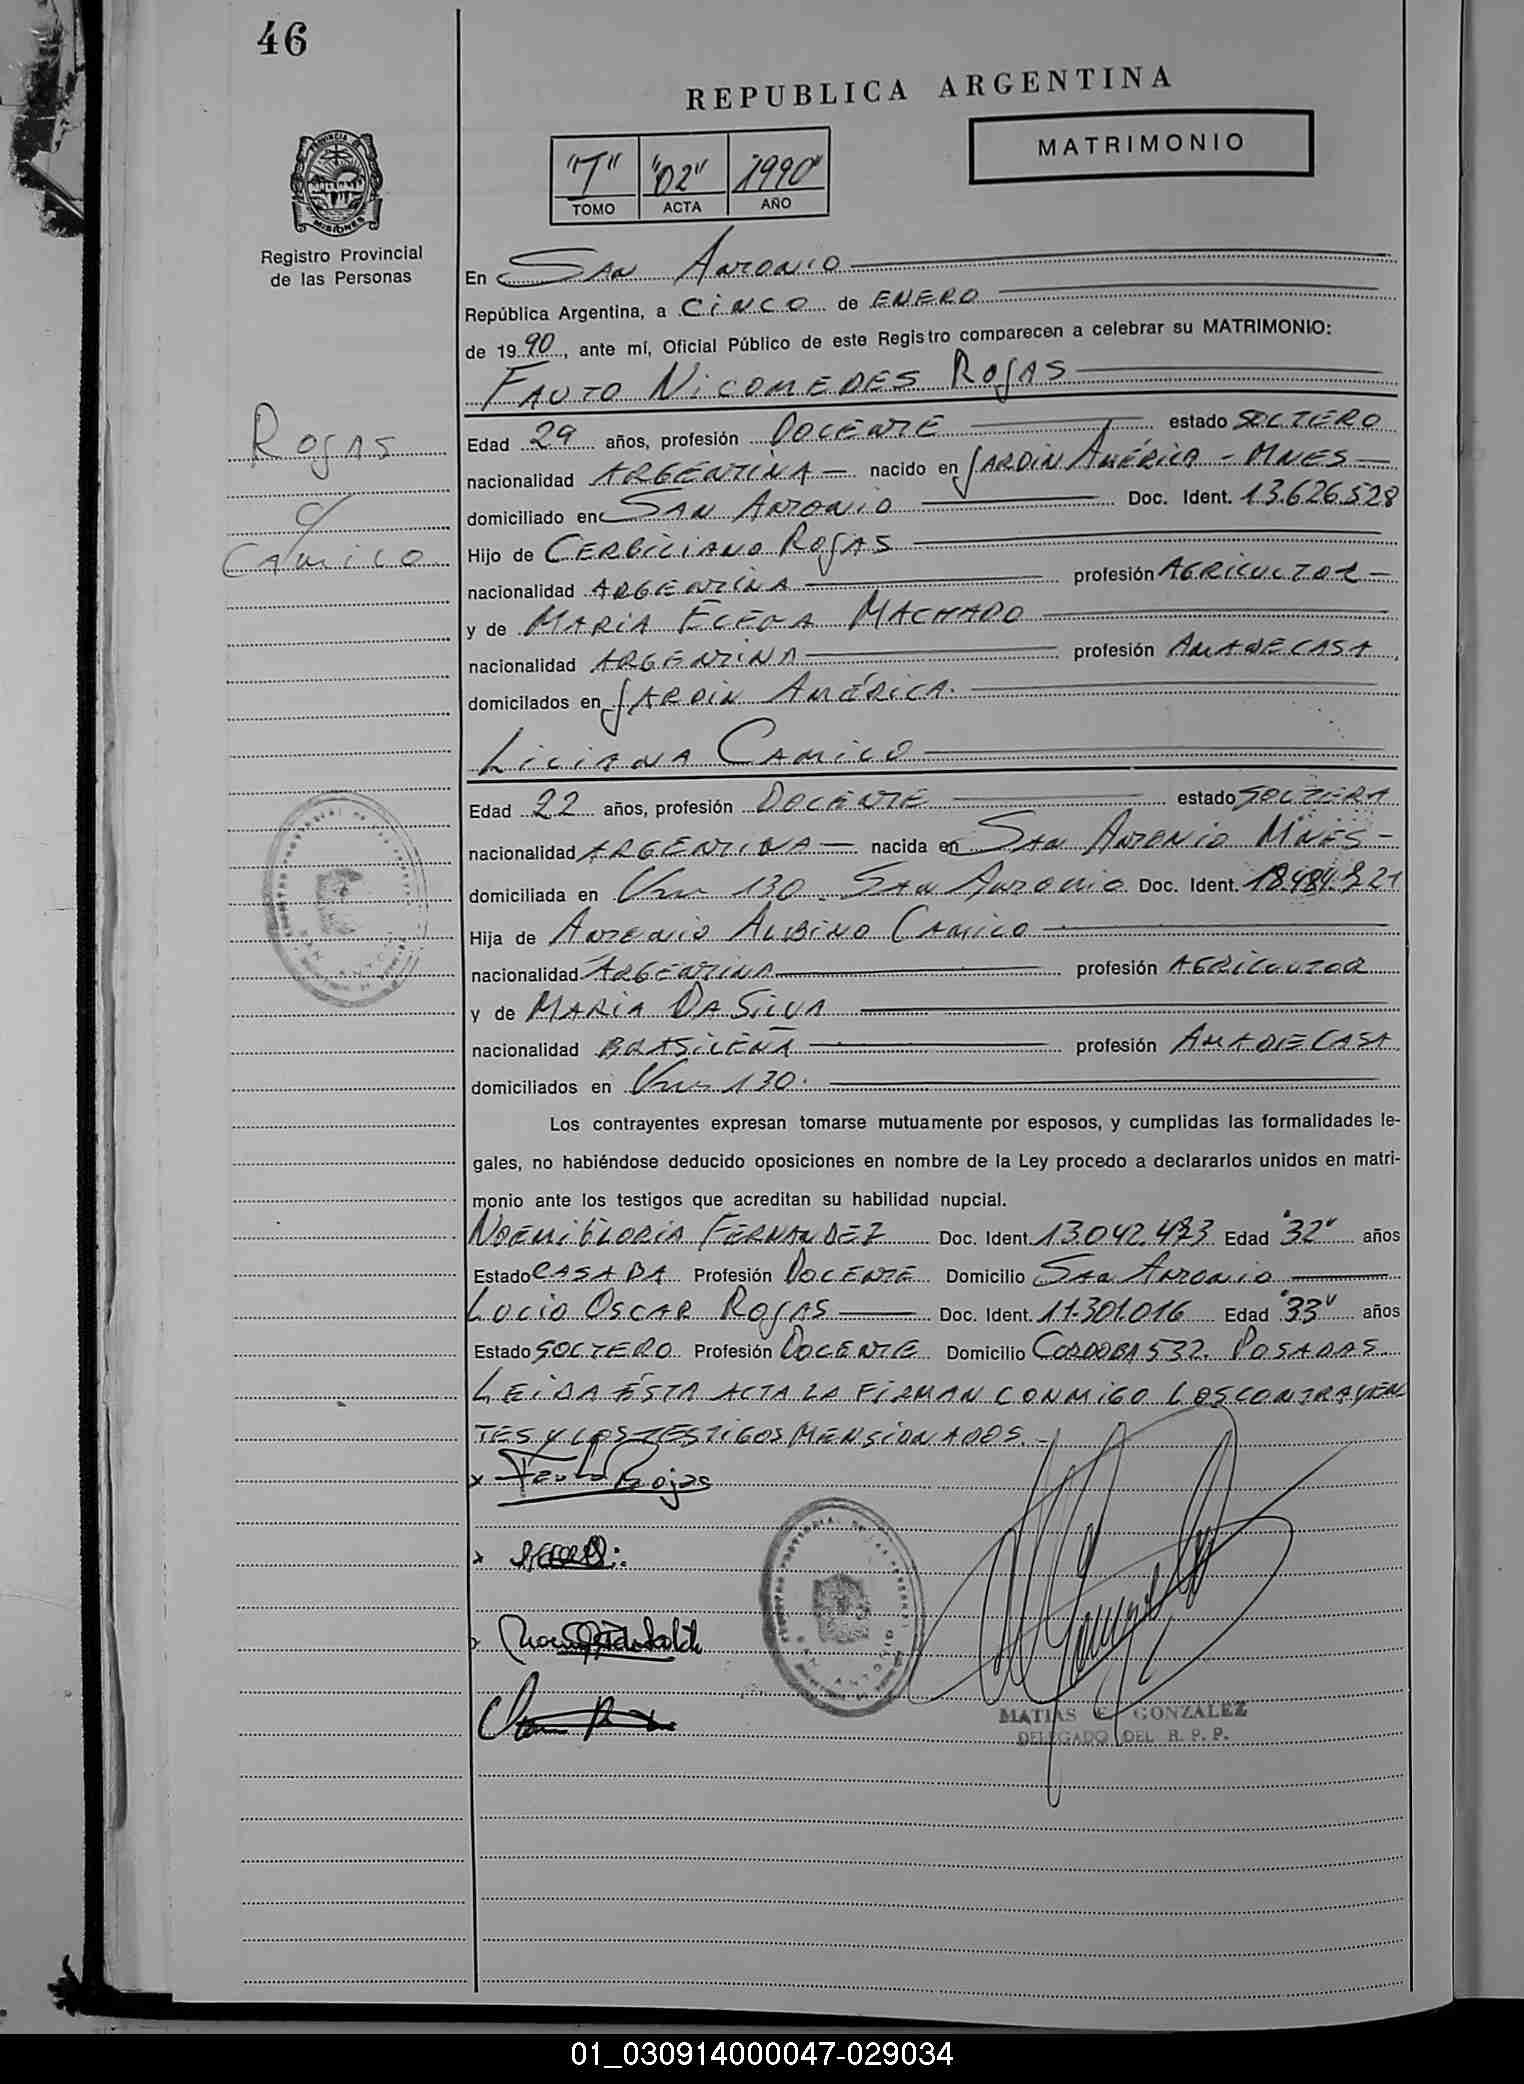 46
REPUBLICA ARGENTINA
MATRIMONIO
"T" "02" 1990"
TOMO ACTA AÑO
PROVINCIA DE
MISIONES
Registro Provincial
de las Personas
En San Antonio
República Argentina, a CINCO de ENERO
de 1990, ante mí, Oficial Público de este Registro comparecen a celebrar su MATRIMONIO:
FAUTO NICOMEDES ROJAS
ROJAS
c/
CAMILO
Edad 29 años, profesión DOCENTE estado SOLTERO
nacionalidad ARGENTINA nacido en JARDIN AMÉRICA - MNES -
domiciliado en SAN ANTONIO Doc. Ident. 13.626.528
Hijo de CERBILIANO ROJAS
nacionalidad ARGENTINA profesión AGRICULTOR -
y de MARIA MACHADO
nacionalidad ARGENTINA profesión AMA DE CASA
domicilados en JARDIN AMÉRICA.
LILIANA CAMILO
Edad 22 años, profesión DOCENTE estado SOLTERA
nacionalidad ARGENTINA - nacida en SAN ANTONIO MNES -
domiciliada en 130. SAN ANTONIO Doc. Ident. 18.484.821
Hija de ANTONIO ALBINO CAMILO
nacionalidad ARGENTINA profesión AGRICULTOR
y de MARIA DA SILVA
nacionalidad BRASILEÑA profesión AMA DE CASA
domiciliados en 130.
Los contrayentes expresan tomarse mutuamente por esposos, y cumplidas las formalidades le-
gales, no habiéndose deducido oposiciones en nombre de la Ley procedo a declararlos unidos en matri-
monio ante los testigos que acreditan su habilidad nupcial.
NOEMI GLORIA FERNANDEZ Doc. Ident. 13.042.473 Edad "32" años
Estado CASADA Profesión DOCENTE Domicilio SAN ANTONIO
LUCIO OSCAR ROJAS Doc. Ident. 11.301.016 Edad "33" años
Estado SOLTERO Profesión DOCENTE Domicilio CORDOBA 532. POSADAS.
LEIDA ÉSTA ACTA LA FIRMAN CONMIGO LOS CONTRAYEN
TES Y LOS TESTIGOS MENSIONADOS. -
x Fauto Rojas
MATIAS E. GONZALEZ
DELEGADO DEL R. P. P.
01_030914000047-029034